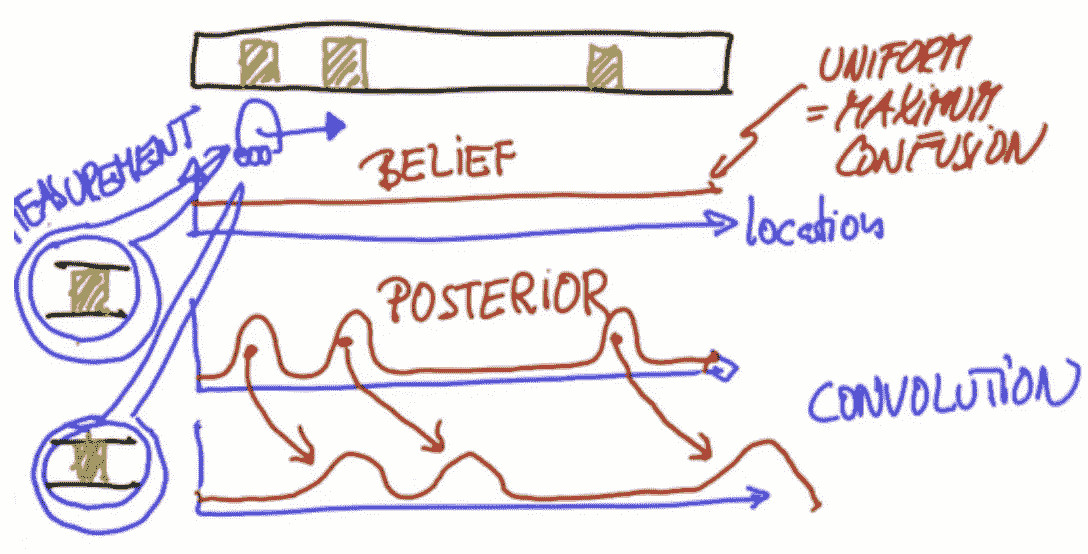 UNIFORM
= MAXIMUM
CONFUSION
MEASUREMENT
BELIEF
location
POSTERIOR
CONVOLUTION